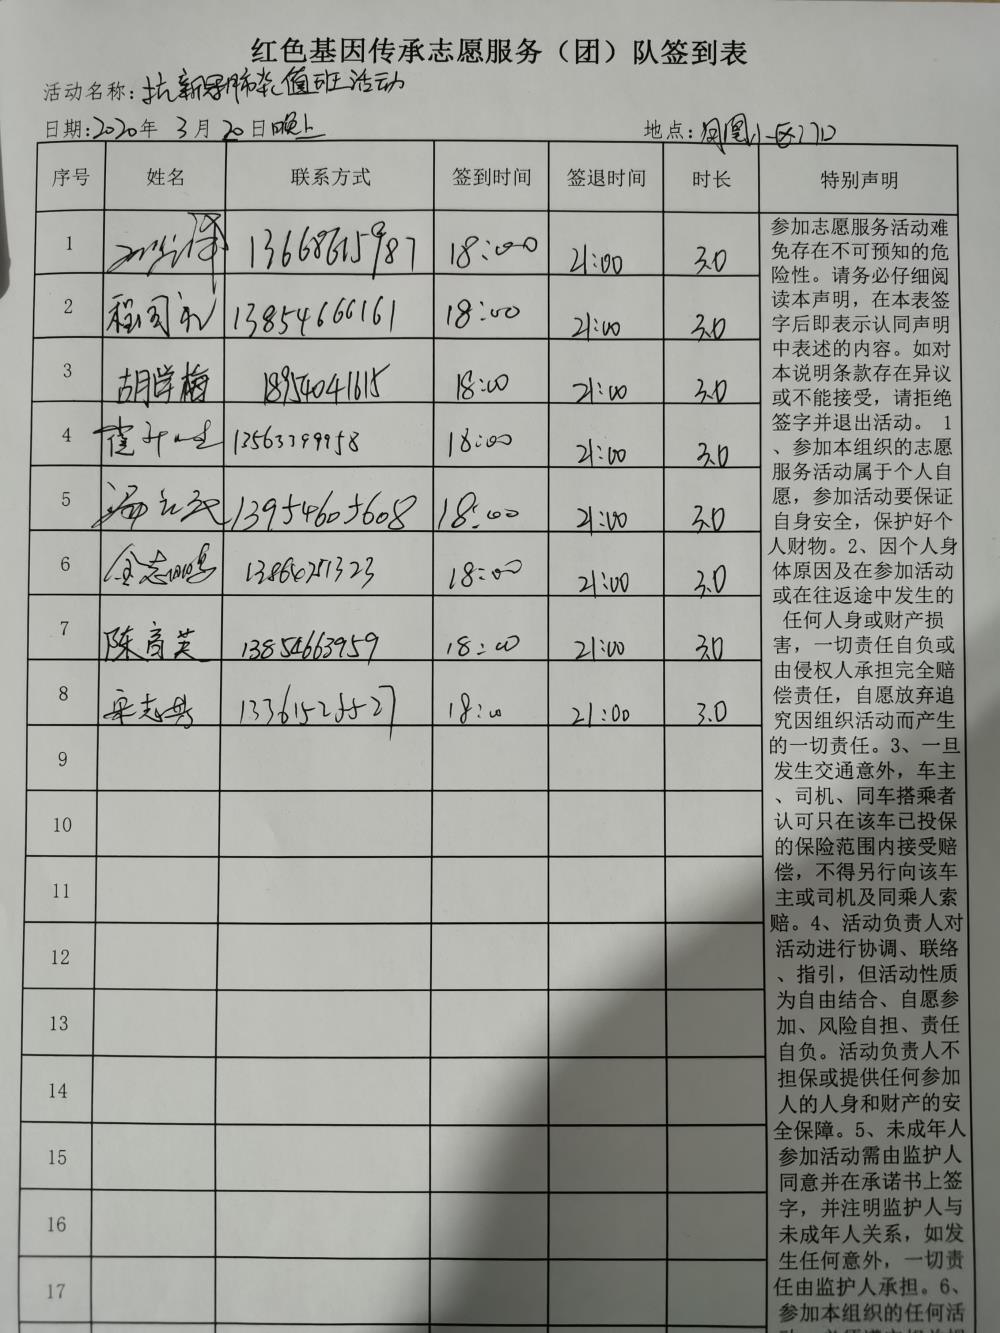 红色基因传承志愿服务（团）队签到表
活动名称：抗新冠肺炎值班活动
日期：2020年 3月 20日晚上 地点：凤凰小区门口
序号 姓名 联系方式 签到时间 签退时间 时长 特别声明
1 13668615987 18:00 21:00 3.0
2 程国礼 13854666161 18:00 21:00 3.0
3 胡学梅 18954041615 18:00 21:00 3.0
4 18:00 21:00 3.0
5 13954605608 18:00 21:00 3.0
6 金志鹏 18:00 21:00 3.0
7 陈育芙 13854663959 18:00 21:00 3.0
8 18:00 21:00 3.0
9
10
11
12
13
14
15
16
17
参加志愿服务活动难
免存在不可预知的危
险性。请务必仔细阅
读本声明，在本表签
字后即表示认同声明
中表述的内容。如对
本说明条款存在异议
或不能接受，请拒绝
签字并退出活动。 1
、参加本组织的志愿
服务活动属于个人自
愿，参加活动要保证
自身安全，保护好个
人财物。2、因个人身
体原因及在参加活动
或在往返途中发生的
任何人身或财产损
害，一切责任自负或
由侵权人承担完全赔
偿责任，自愿放弃追
究因组织活动而产生
的一切责任。3、一旦
发生交通意外，车主
、司机、同车搭乘者
认可只在该车已投保
的保险范围内接受赔
偿，不得另行向该车
主或司机及同乘人索
赔。4、活动负责人对
活动进行协调、联络
、指引，但活动性质
为自由结合、自愿参
加、风险自担、责任
自负。活动负责人不
担保或提供任何参加
人的人身和财产的安
全保障。5、未成年人
参加活动需由监护人
同意并在承诺书上签
字，并注明监护人与
未成年人关系，如发
生任何意外，一切责
任由监护人承担。6、
参加本组织的任何活